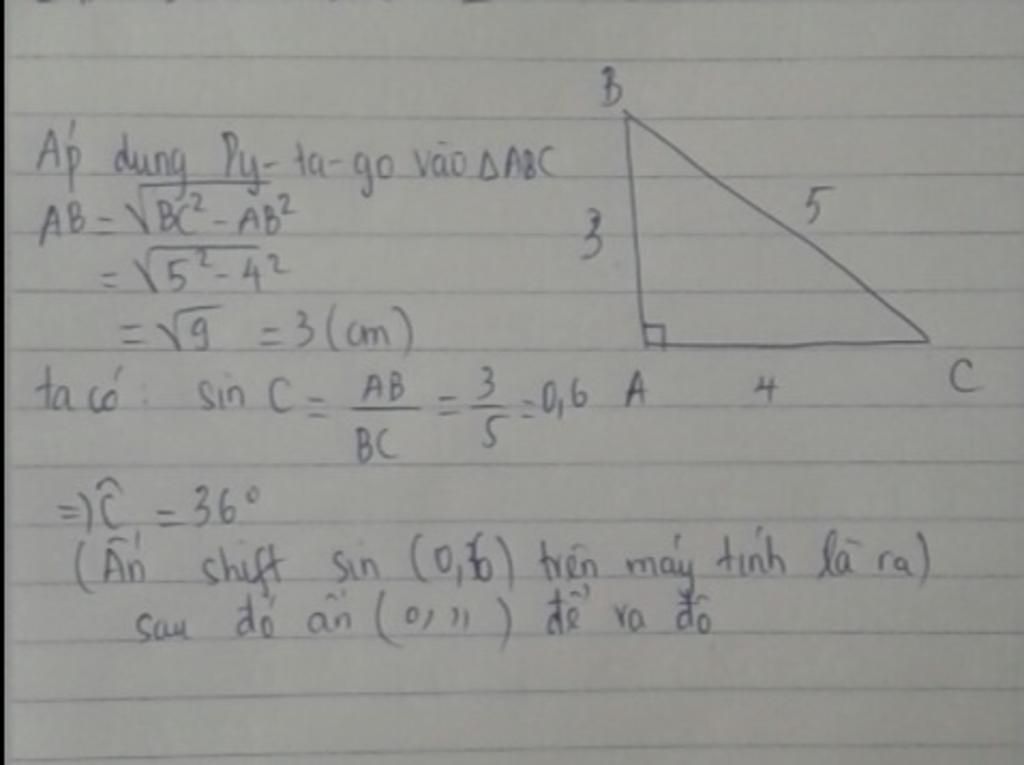 Áp dụng Py-ta-go vào ΔABC
AB = √BC² - AB²
= √5² - 4²
= √9 = 3 (cm)
ta có: sin C = AB/BC = 3/5 = 0,6
=> Ĉ = 36°
(Ấn shift sin (0,6) trên máy tính là ra)
sau đó ấn (0,,,) để ra độ
B
3
5
A
4
C